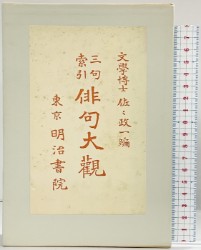 文學博士 佐々政一編
三句索引 俳句大觀
東京 明治書院